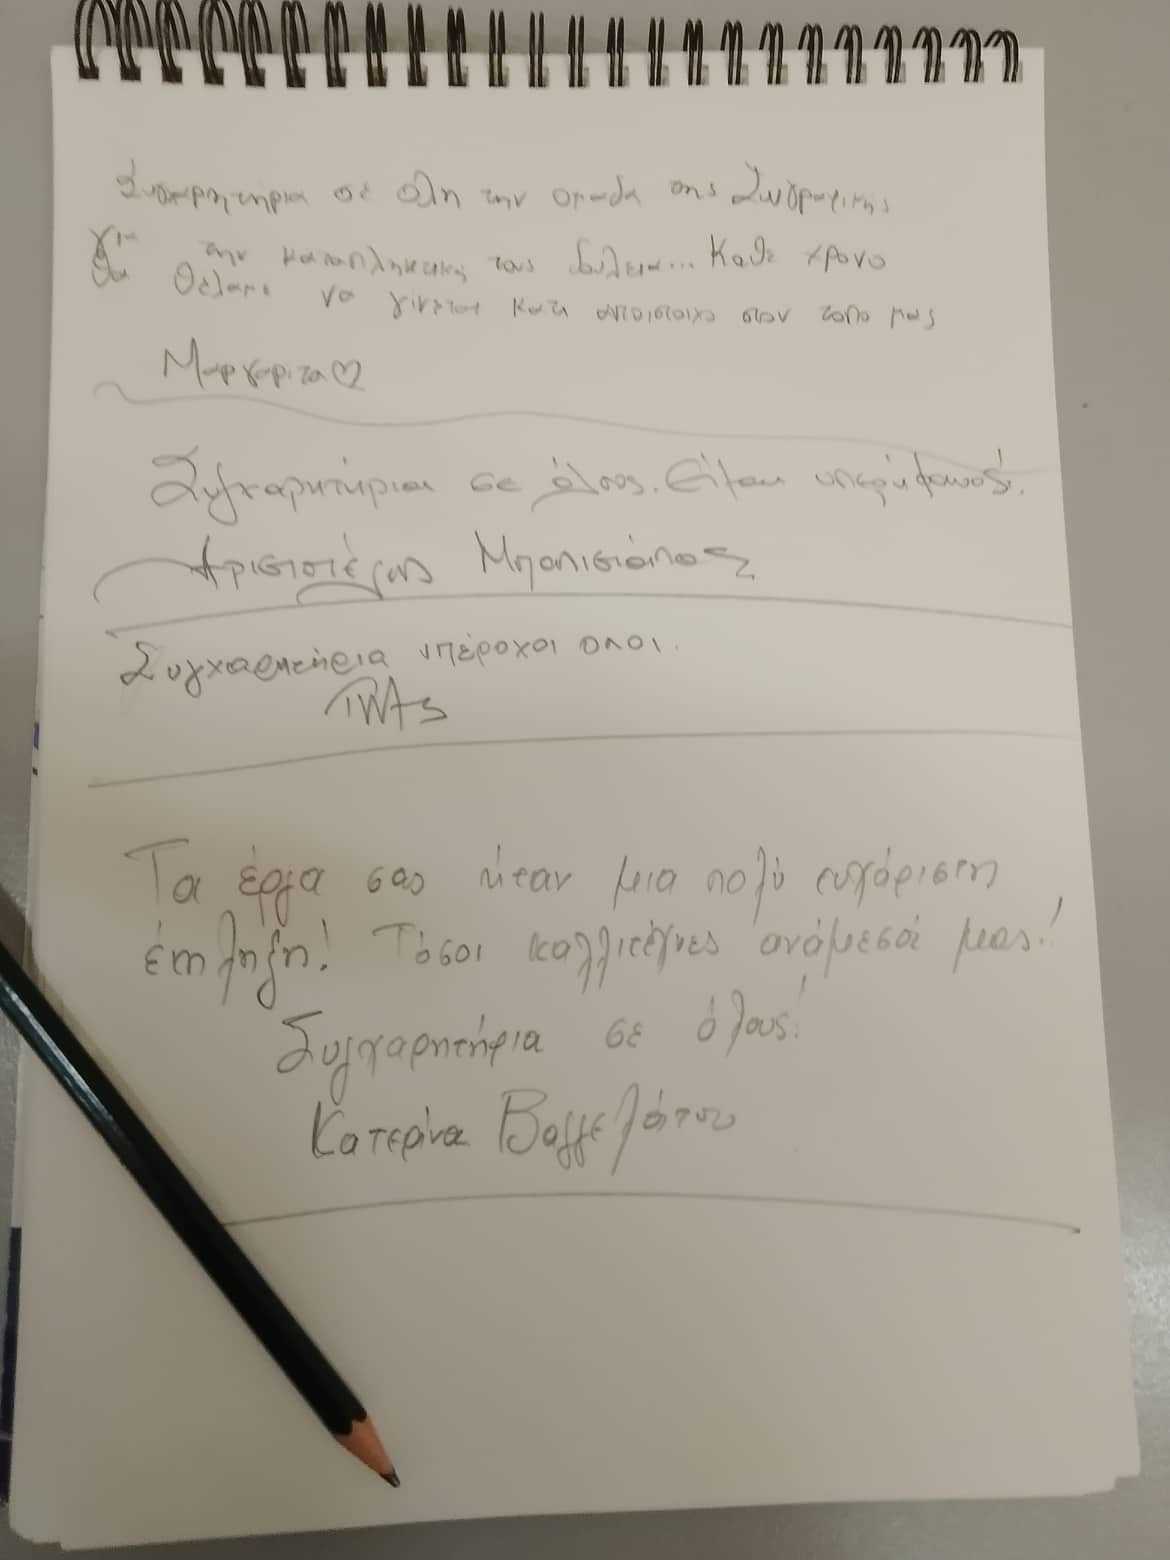 Συγχαρητήρια σε όλη την ομαδα της Ζωγραφικης
για την καταπληκτικη τους δουλεια... Καθε χρονο
θα θελαμε να γίνεται κατι αντιστοιχο στον τοπο μας
Μαργαριτα♡
Συγχαρητήρια σε όλους. Είμαι υπερήφανος!
Μπαλιστόπος
Συγχαρητήρια υπέροχοι ολοι.
Τα έργα σας ήταν μια πολύ ευχάριστη
έκπληξη! Τόσοι καλλιτέχνες ανάμεσά μας!
Συγχαρητήρια σε όλους!
Κατερίνα Βαγγελάτου